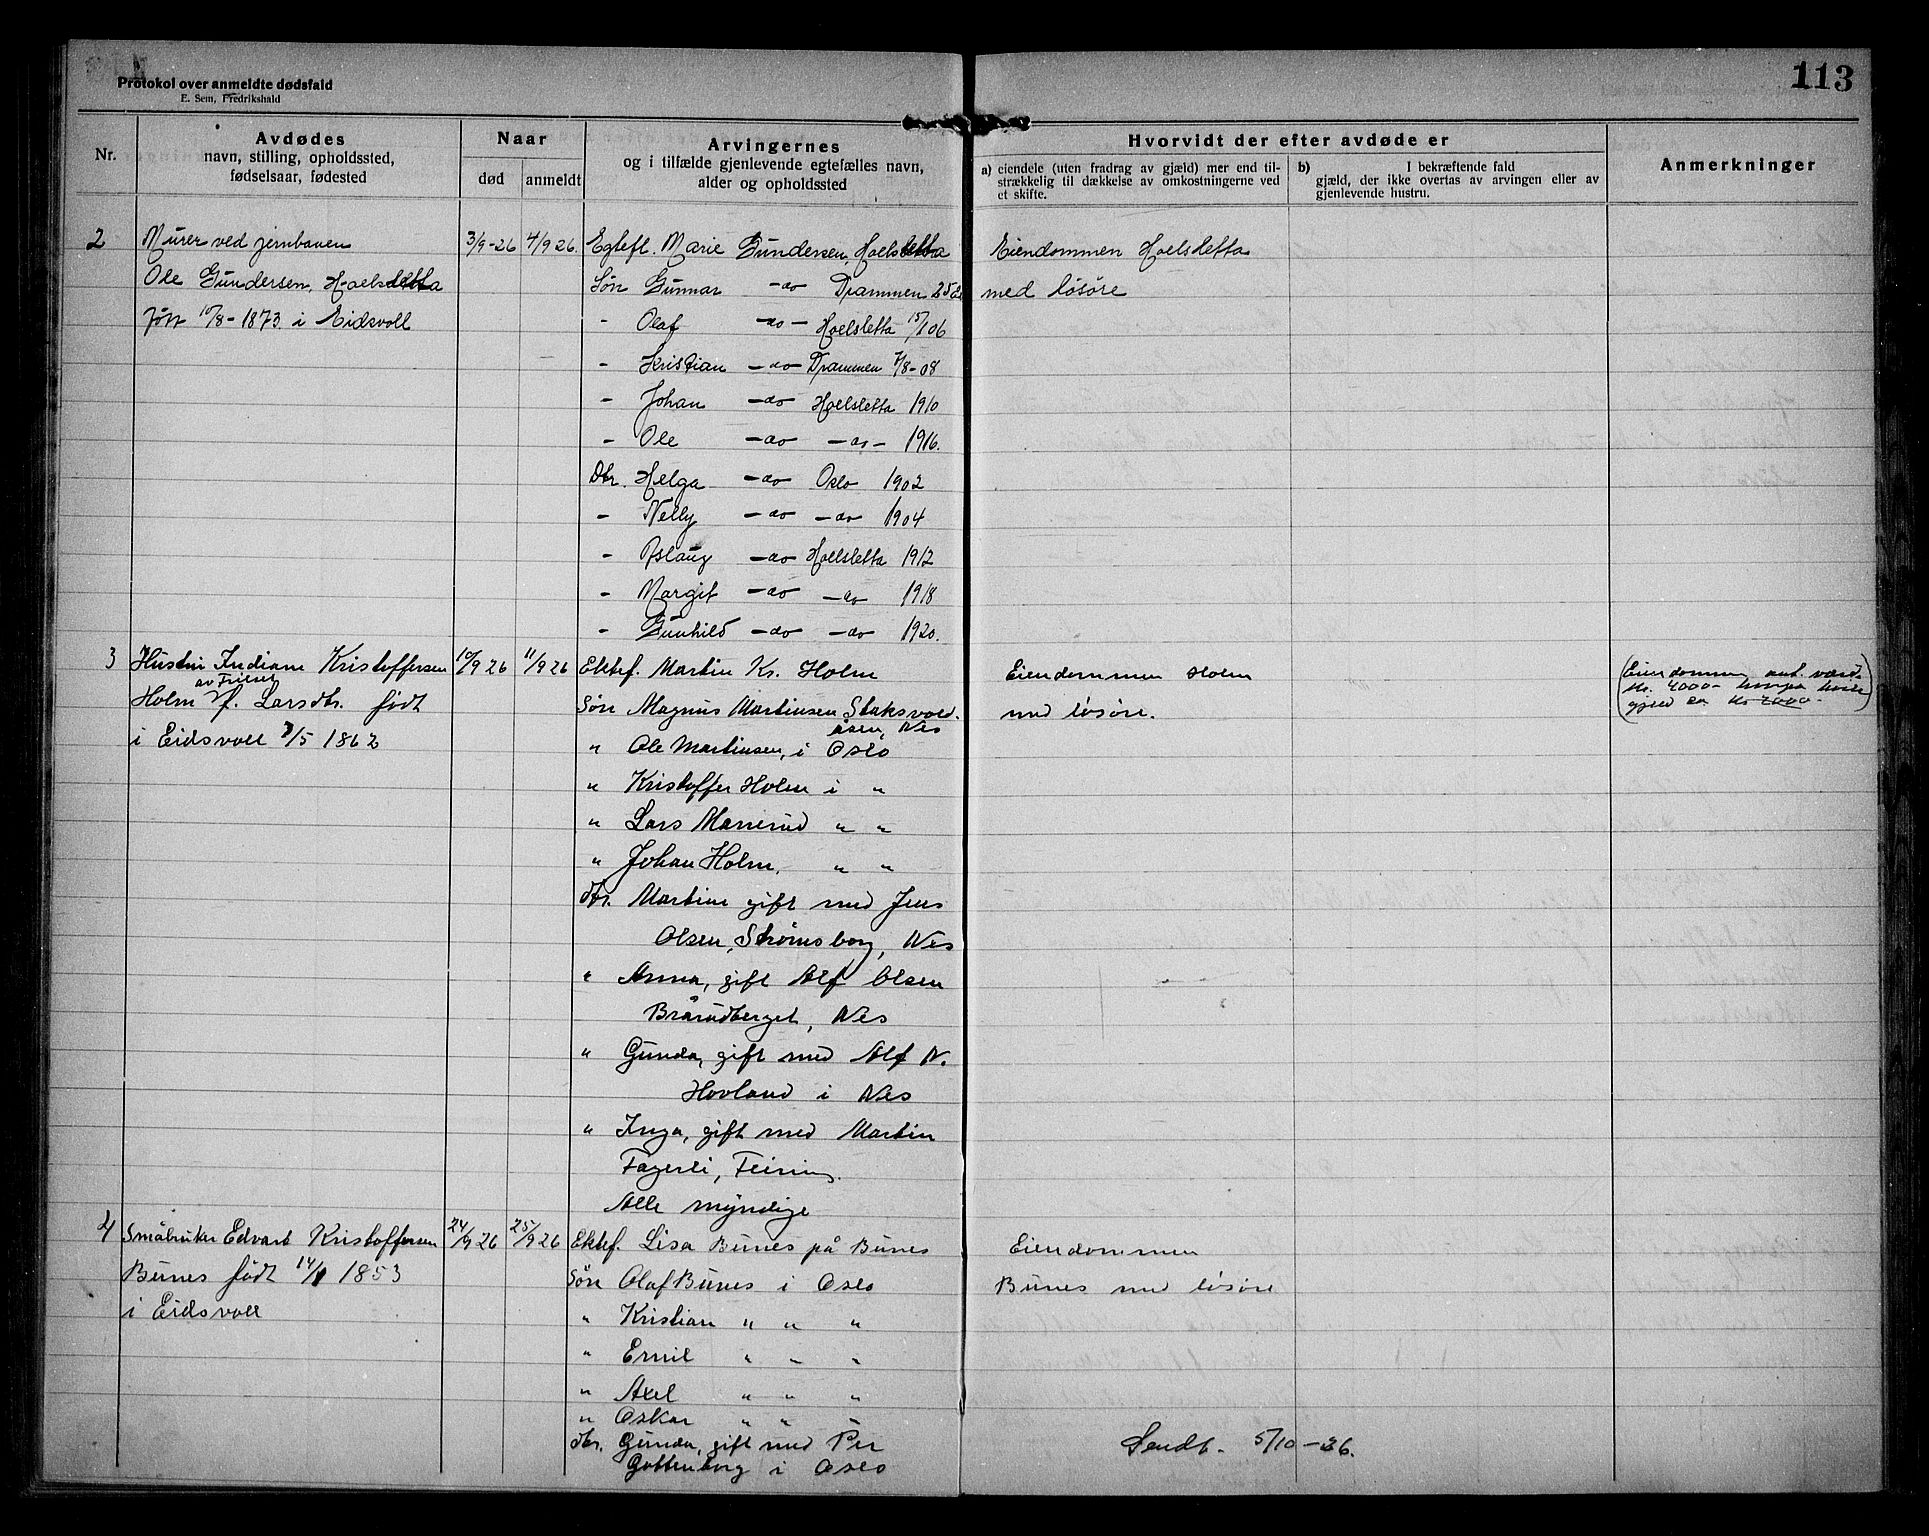 113
Protokol over anmeldte dødsfald
E. Sem, Fredrikshald
Nr.
Avdødes
navn, stilling, opholdssted,
fødselsaar, fødested
Naar
død
anmeldt
Arvingernes
og i tilfælde gjenlevende egtefælles navn,
alder og opholdssted
Hvorvidt der efter avdøde er
a) eiendele (uten fradrag av gjæld) mer end til-
strækkelig til dækkelse av omkostningerne ved
et skifte.
b) I bekræftende fald
gjæld, der ikke overtas av arvingen eller av
gjenlevende hustru.
Anmerkninger
2 Murer ved jernbanen 3/9-26 4/9 26. Egtefl. Marie Gundersen, Hoelsletta Eiendommen Hoelsletta
Ole Gundersen, Hoelsletta Søn Gunnar -do Drammen 25 med løsøre
født 10/8-1873 i Eidsvoll - Olaf -do- Hoelsletta 15/1 06
- Kristian -do- Drammen 7/8-08
- Johan -do Hoelsletta 1910
- Ole -do -do- 1916.
Dtr. Helga -do Oslo 1902
- Nelly -do -do 1904
- Aslaug -do Hoelsletta 1912
- Margit -do -do 1918
- Gunhild -do -do 1920.
3 Hustru Indiane Kristoffersen 10/9 26 11/9 26 Ektef. Martin Kr. Holm Eiendommen Holm (Eiendommen ant. værd
av Frilset
Kr. 4000- hvorpå hviler
Holm f. Larsdtr. født Søn Magnus Martinsen Staksvold- med løsøre. gjeld ca Kr 2000-)
åsen, Nes
i Eidsvoll 7/5 1862 " Ole Martinsen, i Oslo
" Kristoffer Holm i "
" Lars Marierud " "
" Johan Holm. " "
dtr. Martine gift med Jens
Olsen, Strømsborg, Nes
" Anna, gift Alf Olsen
Brårudberget, Nes
" Gunda, gift med Alf N.
Hovland i Nes
" Inga, gift med Martin
Fagerli, Feiring.
Alle myndige
4 Småbruker Edvart Kristoffersen 24/9 26 25/9 26 Ektef. Lisa Bunes på Bunes Eiendommen
Bunes født 14/1 1853 Søn Olaf Bunes i Oslo Bunes med løsøre
i Eidsvoll " Kristian " " "
" Emil " " "
" Axel " " "
" Oskar " "
dtr. Gunda, gift med Per Sendt. 5/10-26.
Gottenborg i Oslo